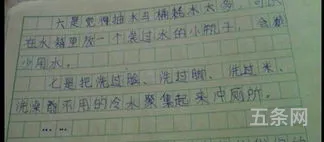 六是觉得抽水马桶耗水太多，可以
在水箱里放一个装过水的小瓶子，会减
少用水。
七是把洗过脸、洗过脚、洗过米、
洗澡前不用的冷水聚集起来冲厕所。
……
五条网